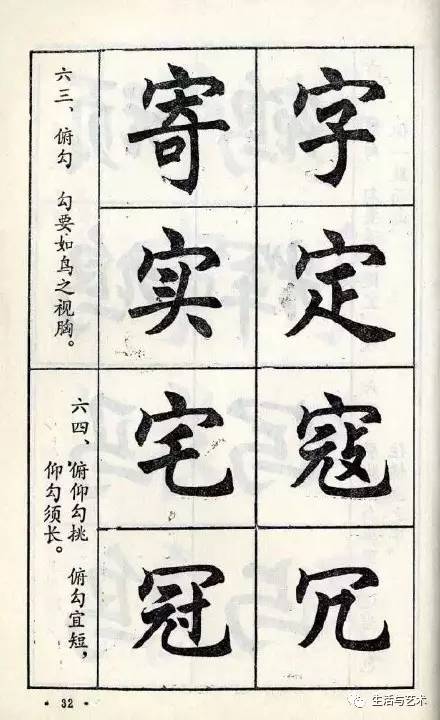 字
定
寇
冗
寄
实
宅
冠
六三、俯勾 勾要如鸟之视胸。
六四、俯仰勾挑 俯勾宜短，
仰勾须长。
· 32 ·
生活与艺术